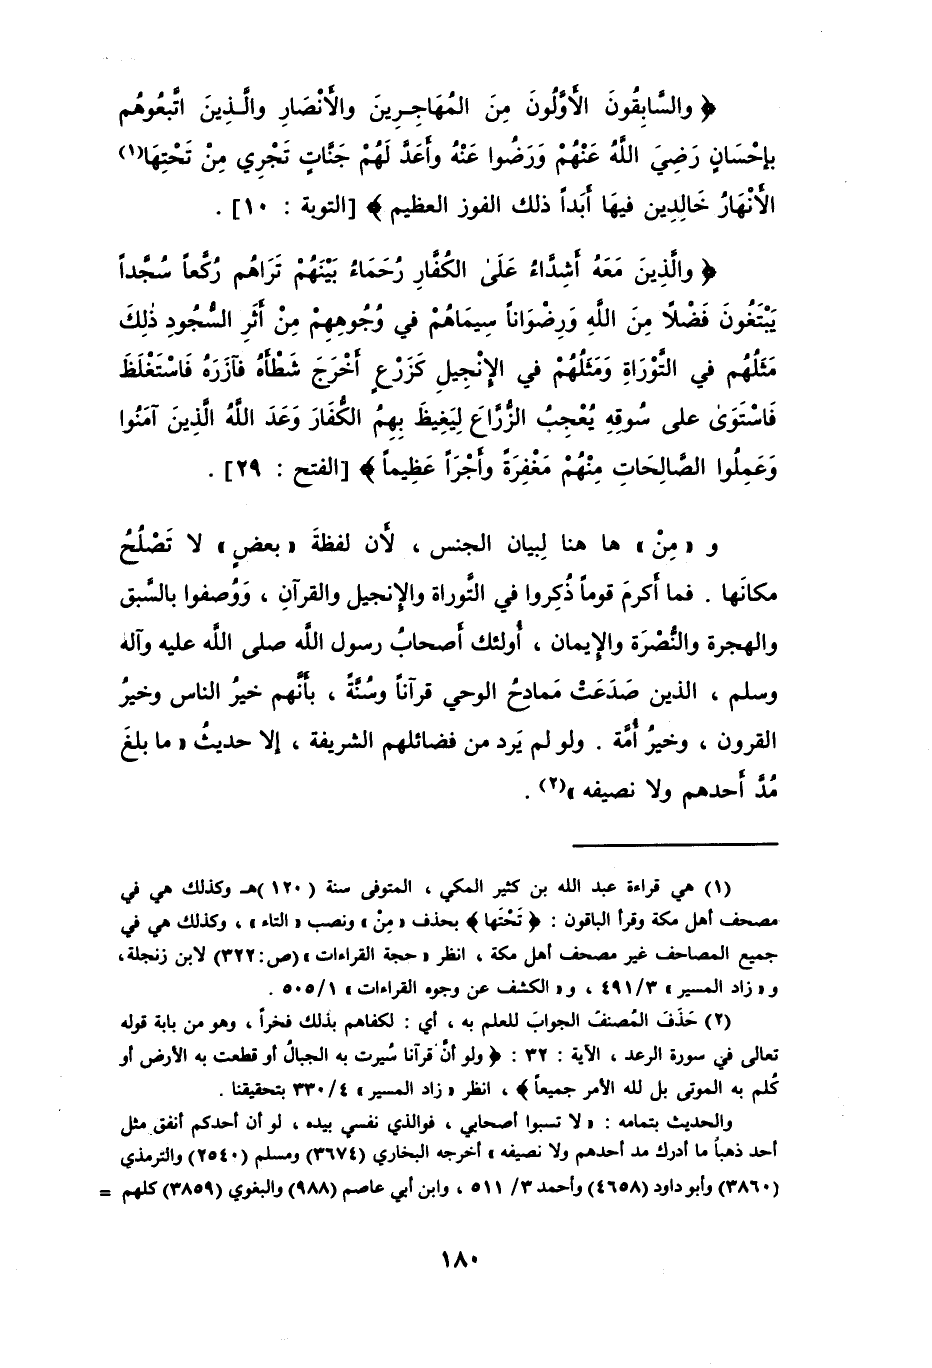 ﴿ والسَّابِقُونَ الأَوَّلُونَ مِنَ المُهَاجِرِينَ والأَنْصَارِ والَّذِينَ اتَّبَعُوهُم
بإحْسَانٍ رَضِيَ اللَّهُ عَنْهُمْ وَرَضُوا عَنْهُ وأَعَدَّ لَهُمْ جَنَّاتٍ تَجْرِي مِنْ تَحْتِهَا(١)
الأَنْهَارُ خَالِدِين فيهَا أَبَداً ذلك الفوز العظيم ﴾ [التوبة : ١٠] .
﴿ والَّذِينَ مَعَهُ أَشِدَّاءُ عَلَىٰ الكُفَّارِ رُحَمَاءُ بَيْنَهُمْ تَرَاهُم رُكَّعاً سُجَّداً
يَبْتَغُونَ فَضْلًا مِنَ اللَّهِ وَرِضْوَاناً سِيمَاهُمْ في وُجُوهِهِمْ مِنْ أَثَرِ السُّجُودِ ذٰلِكَ
مَثَلُهُم في التَّوْرَاةِ وَمَثَلُهُمْ في الإِنْجِيلِ كَزَرْعٍ أَخْرَجَ شَطْأَهُ فآزَرَهُ فَاسْتَغْلَظَ
فَاسْتَوَىٰ على سُوقِهِ يُعْجِبُ الزُّرَّاعَ لِيَغِيظَ بِهِمُ الكُفَّارَ وَعَدَ اللَّهُ الَّذِينَ آمَنُوا
وَعَمِلُوا الصَّالِحَاتِ مِنْهُمْ مَغْفِرَةً وأَجْرَاً عَظِيماً ﴾ [الفتح : ٢٩] .
و « مِنْ » ها هنا لِبيان الجنس ، لأَن لفظةَ « بعضٍ » لا تَصْلُحُ
مكانَها . فما أَكرمَ قوماً ذُكِروا في التَّوراة والإِنجيل والقرآنِ ، وَوُصفوا بالسَّبق
والهجرة والنُّصْرَة والإِيمان ، أُولئك أَصحابُ رسول اللَّه صلى اللَّه عليه وآله
وسلم ، الذين صَدَعَتْ مَمادحُ الوحي قرآناً وسُنَّةً ، بأَنَّهم خيرُ الناس وخيرُ
القرون ، وخيرُ أُمَّة . ولو لم يَرد من فضائلهم الشريفة ، إلا حديثُ « ما بلغَ
مُدَّ أَحدهم ولا نصيفه »(٢) .
(١) هي قراءة عبد الله بن كثير المكي ، المتوفى سنة (١٢٠)هـ وكذلك هي في
مصحف أهل مكة وقرأ الباقون : ﴿ تَحْتَها ﴾ بحذف « مِنْ » ونصب « التاء » ، وكذلك هي في
جميع المصاحف غير مصحف أهل مكة ، انظر « حجة القراءات » (ص:٣٢٢) لابن زنجلة،
و « زاد المسير » ٣/٤٩١ ، و « الكشف عن وجوه القراءات » ١/٥٠٥ .
(٢) حَذَفَ المُصنفُ الجوابَ للعلم به ، أي : لكفاهم بذلك فخراً ، وهو من بابة قوله
تعالى في سورة الرعد ، الآية : ٣٢ : ﴿ ولو أنَّ قرآنا سُيرت به الجبالُ أو قطعت به الأرض أو
كُلم به الموتى بل لله الأمر جميعاً ﴾ ، انظر « زاد المسير » ٤/٣٣٠ بتحقيقنا .
والحديث بتمامه : « لا تسبوا أصحابي ، فوالذي نفسي بيده ، لو أن أحدكم أنفق مثل
أحد ذهباً ما أدرك مد أحدهم ولا نصيفه » أخرجه البخاري (٣٦٧٤) ومسلم (٢٥٤٠) والترمذي
(٣٨٦٠) وأبو داود (٤٦٥٨) وأحمد ٣/ ٥١١ ، وابن أبي عاصم (٩٨٨) والبغوي (٣٨٥٩) كلهم =
١٨٠